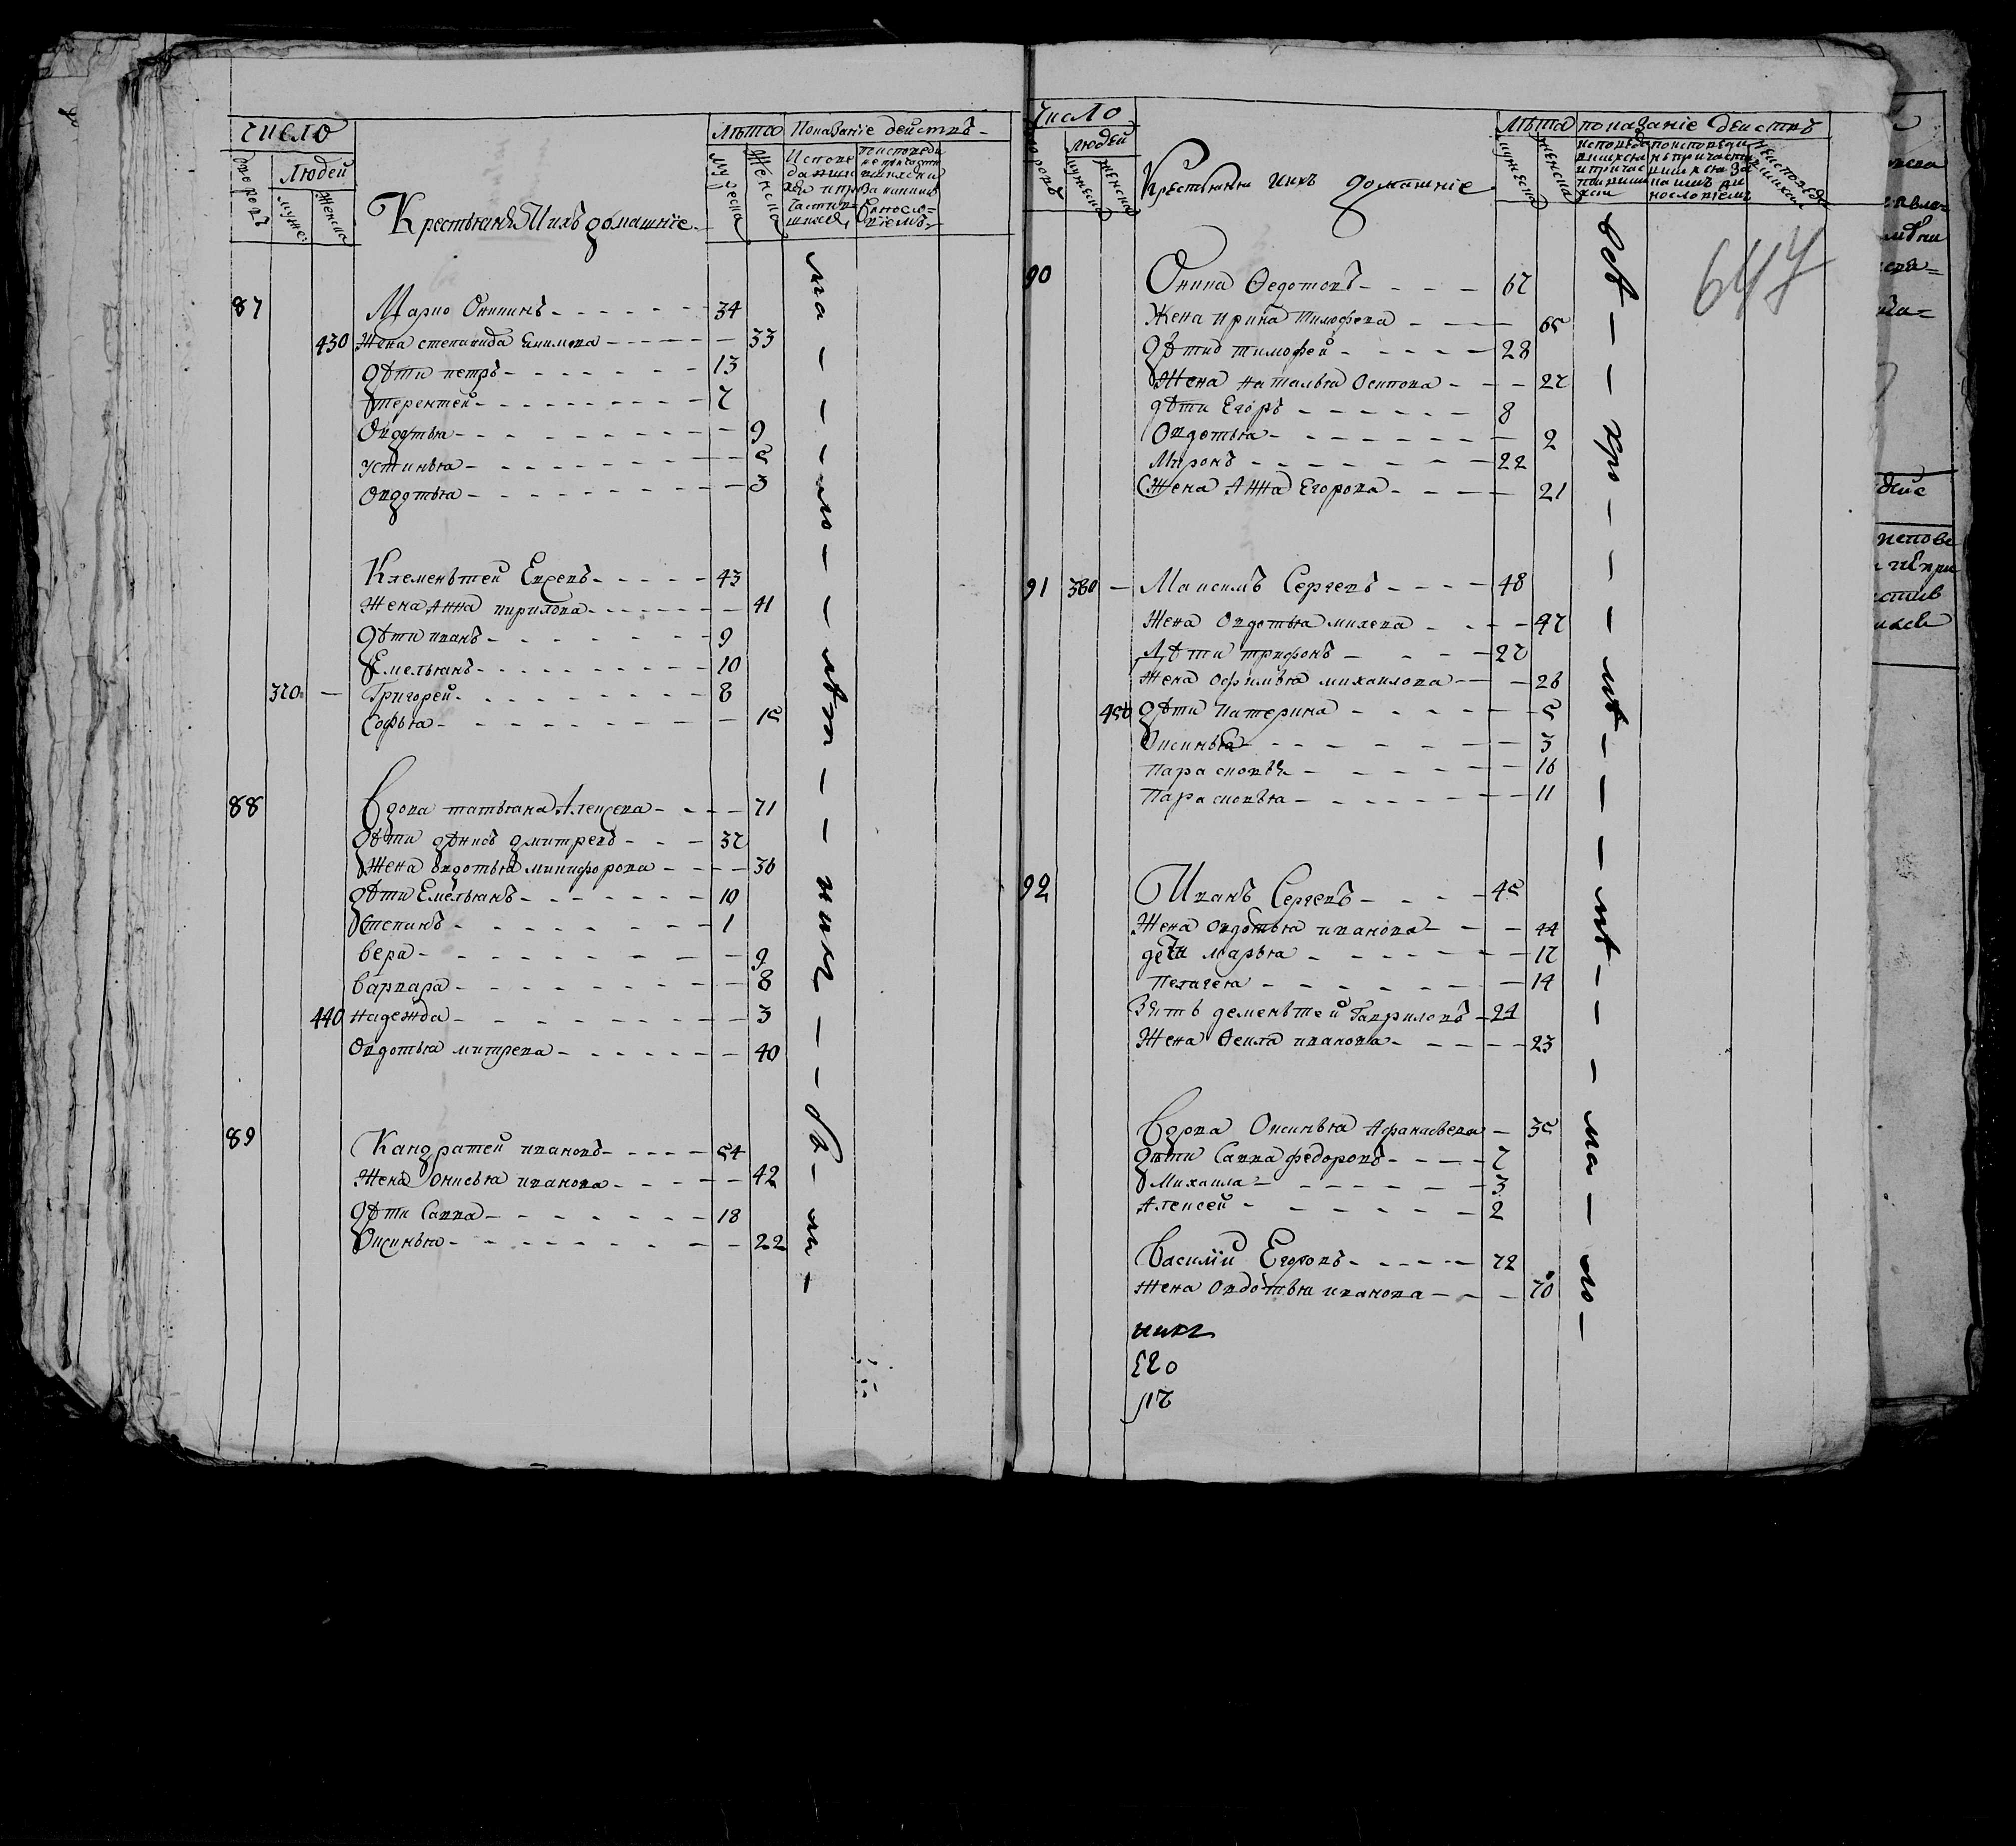 число
дворовъ
людей
муже
женска
Крестьяня Ихъ домашнїе
лѣта
мужеска
женска
Показанїе действъ
87 Марко Оникинъ 34
430 Жена степанида Екимова 33
дѣти петръ 13
терентей 7
Овдотья 9
устинья 5
Овдотья 3
Клеменьтей Евсевъ 43
Жена Анна кирилова 41
дѣти иванъ 9
Емельянъ 10
370 Григорей 8
Софья 15
88 Вдова татьяна Алексева 71
дѣти дѣнисъ дмитревъ 37
Жена Овдотья микифорова 36
дѣти Емельянъ 10
Степанъ 1
вера 9
варвара 8
440 надежда 3
Овдотья митрева 40
89 Кандратей ивановъ 54
Жена Онисья иванова 42
дѣти Савва 18
Оксинья 22
число
дворовъ
людей
мужеска
женска
Крестьяня Ихъ домашнїе
лѣта
мужеска
женска
показанїе действъ
647
90 Оника Ѳедотовъ 67
Жена ирина тимофева 65
дѣти тимофей 28
Жена наталья Осипова 27
дѣти Егоръ 8
Овдотья 2
Миронъ 22
Жена Анна Егорова 21
91 380 Максимъ Сергевъ 48
Жена Овдотья михева 47
Дѣти трифонъ 27
Жена Офимья михаилова 26
450 дѣти Катерина 5
Оксинья 3
Парасковья 16
Парасковья 11
92 Иванъ Сергевъ 45
Жена Овдотья иванова 44
дети марья 17
Пелагея 14
Зять дементей Гавриловъ 24
Жена Ѳекла иванова 23
Вдова Оксинья Афанасьева 35
дѣти Савва федоровъ 7
Михаила 3
Алексей 2
Василїй Егоровъ 72
Жена Овдотья иванова 70